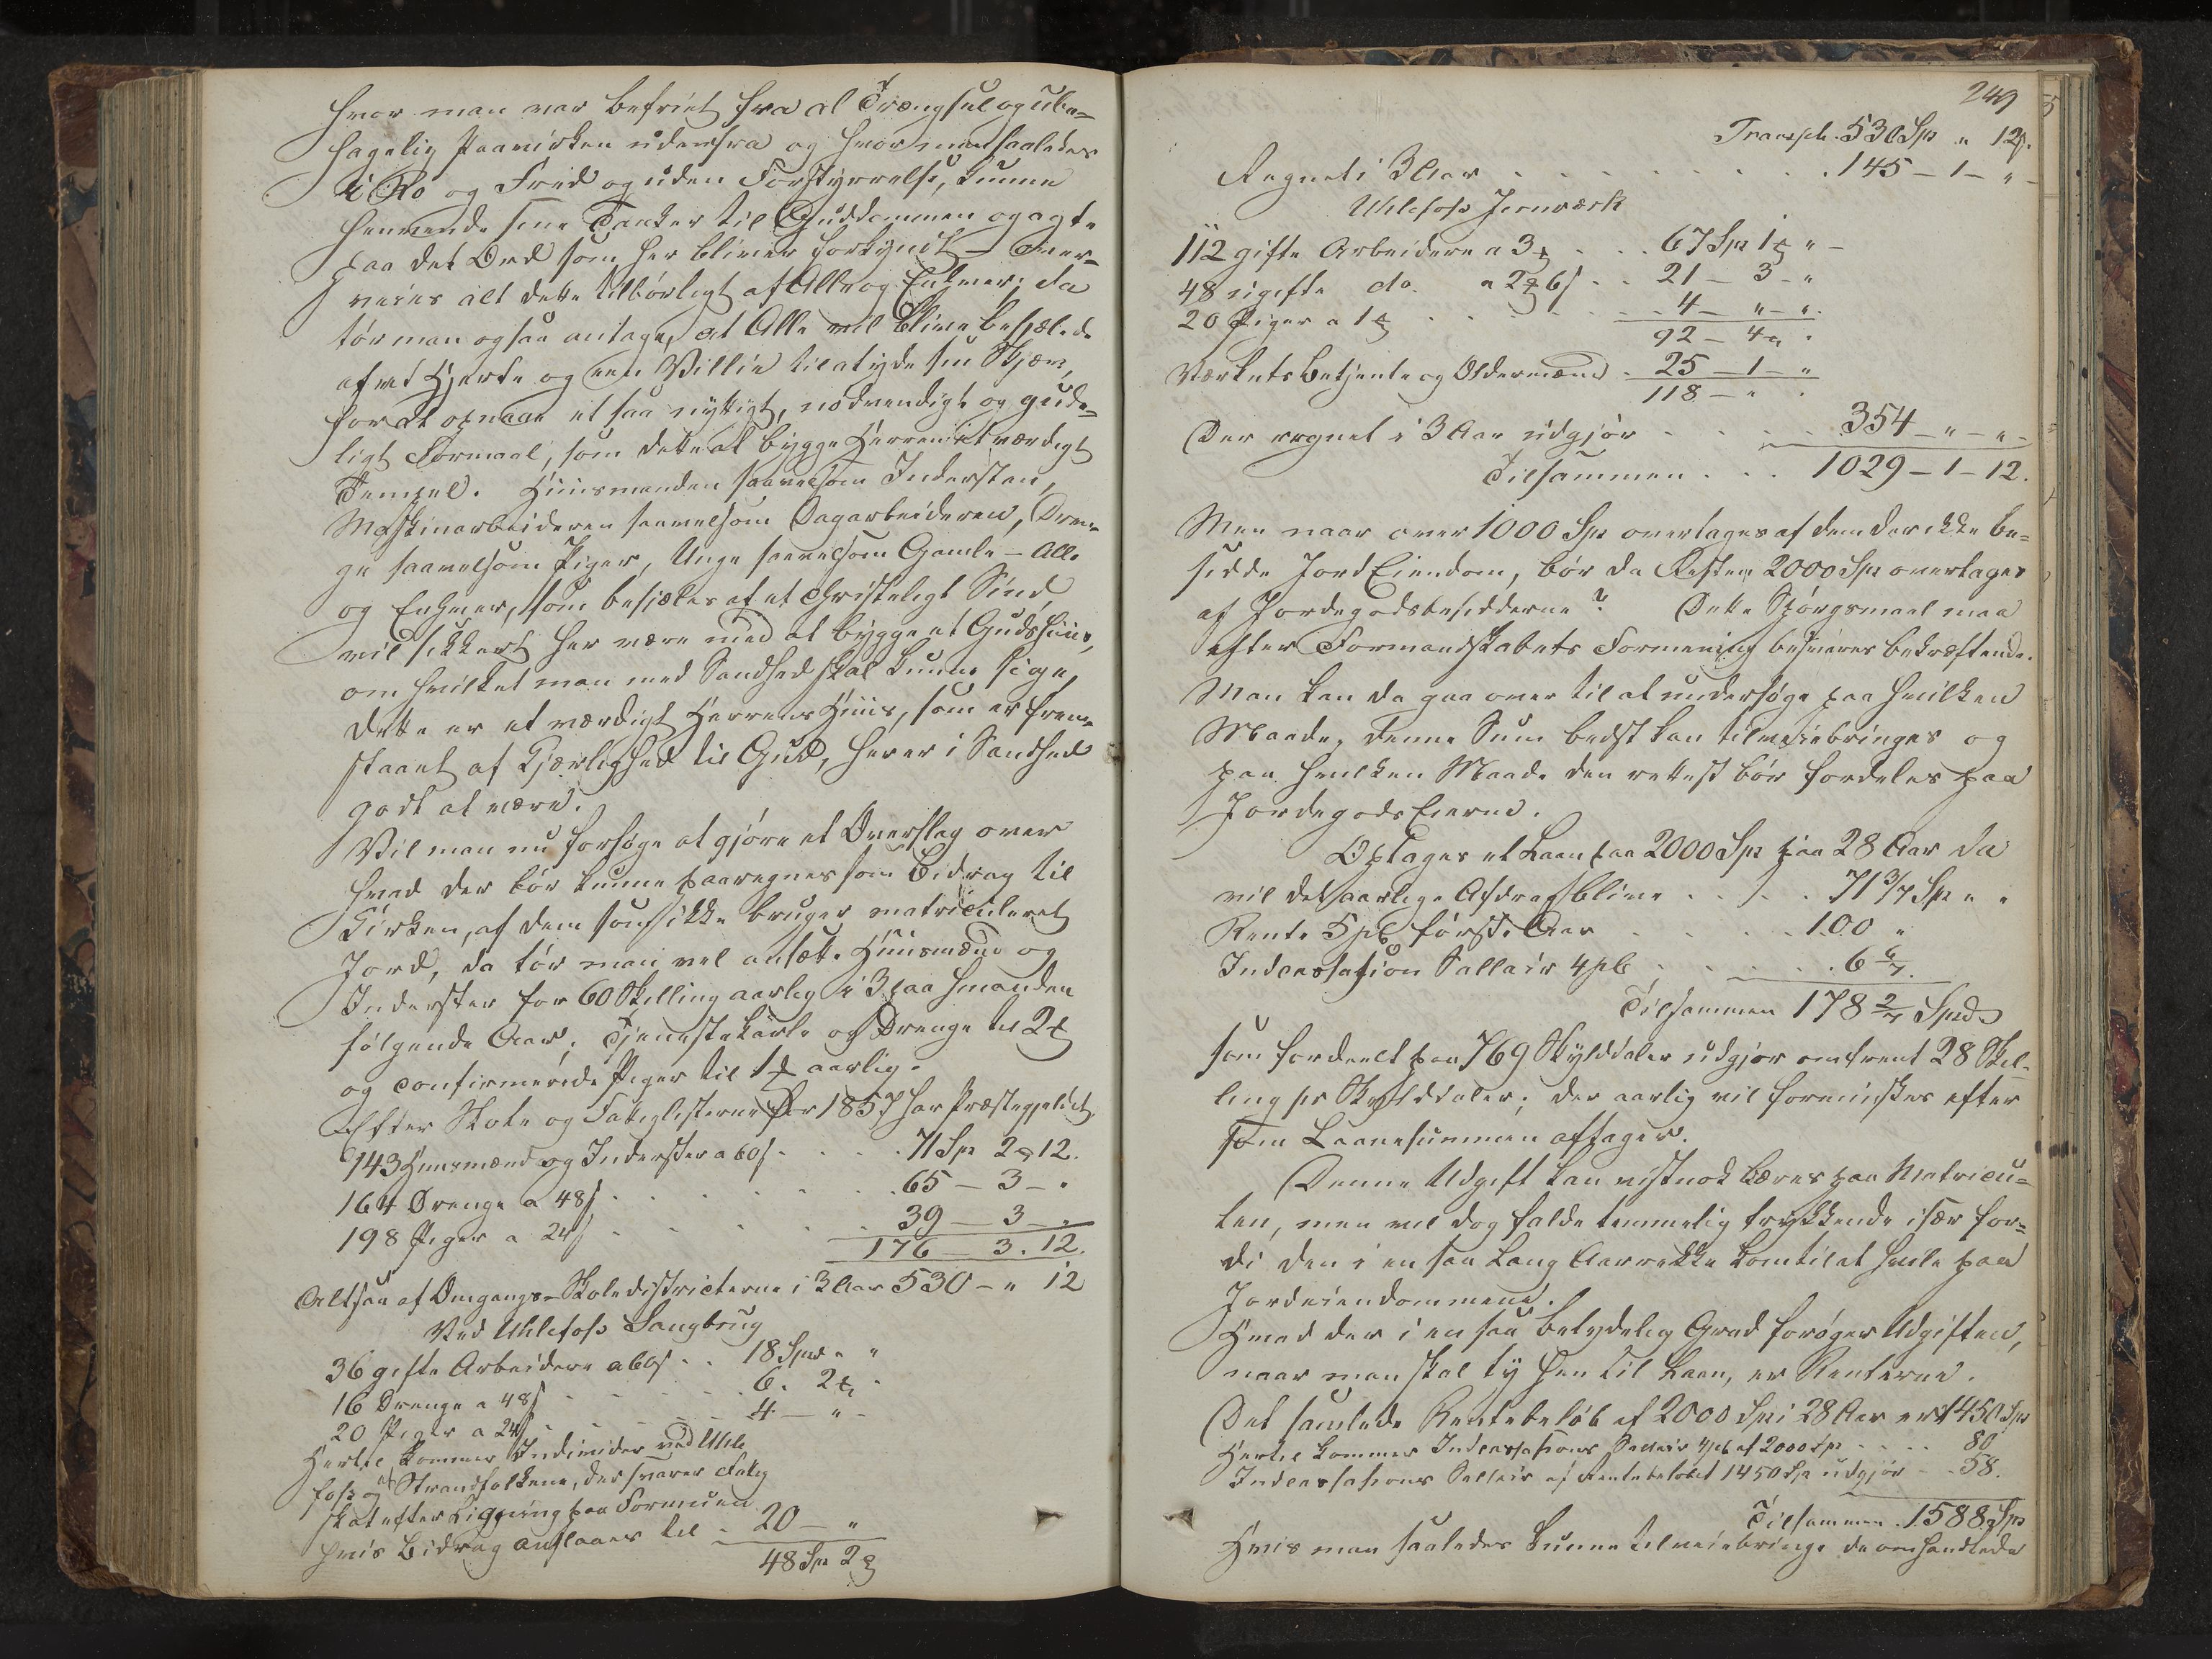 hvor man var befriet fra al Trængsel og ube-
hagelig Paavirken udenfra og hvor man saaledes
i Ro og Fred og uden Forstyrrelse, kunne
henvende sine Tanker til Guddommen og agte
paa det Ord som her bliver forkyndt – Over-
veies alt dette tilbørligt af Alle og Enhver; da
tør man ogsaa antage, at Alle vil blive besjælede
af et Hjerte og een Villie til at yde sin Skjærv,
for at opnaae et saa nyttigt, nødvendigt og gude-
ligt Formaal, som dette at bygge Herren et værdigt
Tempel. Huusmanden saavelsom Indersten,
Maskinarbeideren saavelsom Dagarbeideren, Dren-
ge saavelsom Piger, Unge saavelsom Gamle – Alle
og Enhver, som besjæles af et christeligt Sind
vil sikkert her være med at bygge et Gudshuus,
om hvilket man med Sandhed skal kunne sige,
dette er et værdigt Herrens Huus, som er frem-
staaet af Kjærlighed til Gud, her er i Sandhed
godt at være.
Vil man nu forsøge at gjøre et Overslag over
hvad der bør kunne paaregnes som Bidrag til
Kirken, af dem som ikke bruger matriculeret
Jord, da tør man vel ansætte Huusmænd og
Inderster for 60 Skilling aarlig i 3 paa hinanden
følgende Aar; Tjenestekarle og Drenge til 2 ₰
og confirmerede Piger til 1 ₰ aarlig.
Efter Skole og Fatiglisterne for 1857 har Præstegjeldet
143 Huusmænd og Inderster a 60 s . . . 71 Sp 2 ₰ 12.
164 Drenge a 48 s . . . . . . 65 – 3 – "
198 Piger a 24 s . . . . . . 39 – 3 – "
176 – 3 . 12.
Altsaa af Omgangs-Skoledistricterne i 3 Aar 530 – " 12
Ved Uhlefoss Saugbrug
36 gifte Arbeidere a 60 s . . 18 Spd " "
16 Drenge a 48 s . . . . 6. 2 ₰ "
20 Piger a 24 s . . . . 4 – " –
Hertil kommer Individer ved Uhle
foss og af Strandfolkene, der svarer Fatig
skat efter Ligning paa Formuen
hvis Bidrag anslaaes til – 20 – "
48 Sp 2 ₰
249
Transp. 530 Sp " 12 s.
Regnet i 3 Aar . . . . . . . 145 – 1 – " –
Uhlefoss Jernværk
112 gifte Arbeidere a 3 ₰ . . . 67 Sp 1 ₰ " –
48 ugifte do. a 2 ₰ 6 s . . 21 – 3 – "
20 Piger a 1 ₰ . . . . . 4 – " – "
92 – 4 " .
Værkets Betjente og Oldermænd – 25 – 1 – "
118 – " .
Der regnet i 3 Aar udgjør . . . . 354 – " – " –
Tilsammen . . . 1029 – 1 – 12.
Men naar over 1000 Sp overtages af dem der ikke be-
sidde Jord Eiendom, bør da Resten 2000 Sp overtages
af Jordegodsbesidderne? Dette Spørgsmaal maa
efter Formandskabets Formening besvares bekræftende.
Man kan da gaa over til at undersøge paa hvilken
Maade, denne Sum bedst kan tilveiebringes og
paa hvilken Maade den rettest bør fordeles paa
Jordegods Eierne.
Optages et Laan paa 2000 Sp paa 28 Aar da
vil det aarlige Afdrag blive . . . . 71 3/7 Sp " "
Rente 5 pC første Aar . . . . . 100 "
Indcassation Sallair 4 pC . . . . . 6 6/7.
Tilsammen 178 2/7 Spd
som fordeelt paa 769 Skylddaler udgjør omtrent 28 Skil-
ling pr Skylddaler; der aarlig vil formindskes efter
som Laanesummen aftager.
Denne Udgift kan vistnok bæres paa Matricu-
len, men vil dog falde temmelig trykkende især for-
di den i en saa lang Aarrække kom til at hvile paa
Jordeiendommene.
Hvad der i en saa betydelig Grad forøger Udgiften,
naar man skal ty hen til Laan, er Renterne.
Det samlede Rentebeløb af 2000 Sp i 28 Aar er 1450 Sp
Hertil kommer Indcassations Sallair 4 pC af 2000 Sp . . . . 80
Indcassations Sallair af Rentebeløbet 1450 Sp udgjør – . 58.
Tilsammen . 1588 Sp
Hvis man saaledes kunne tilveiebringe de omhandlede